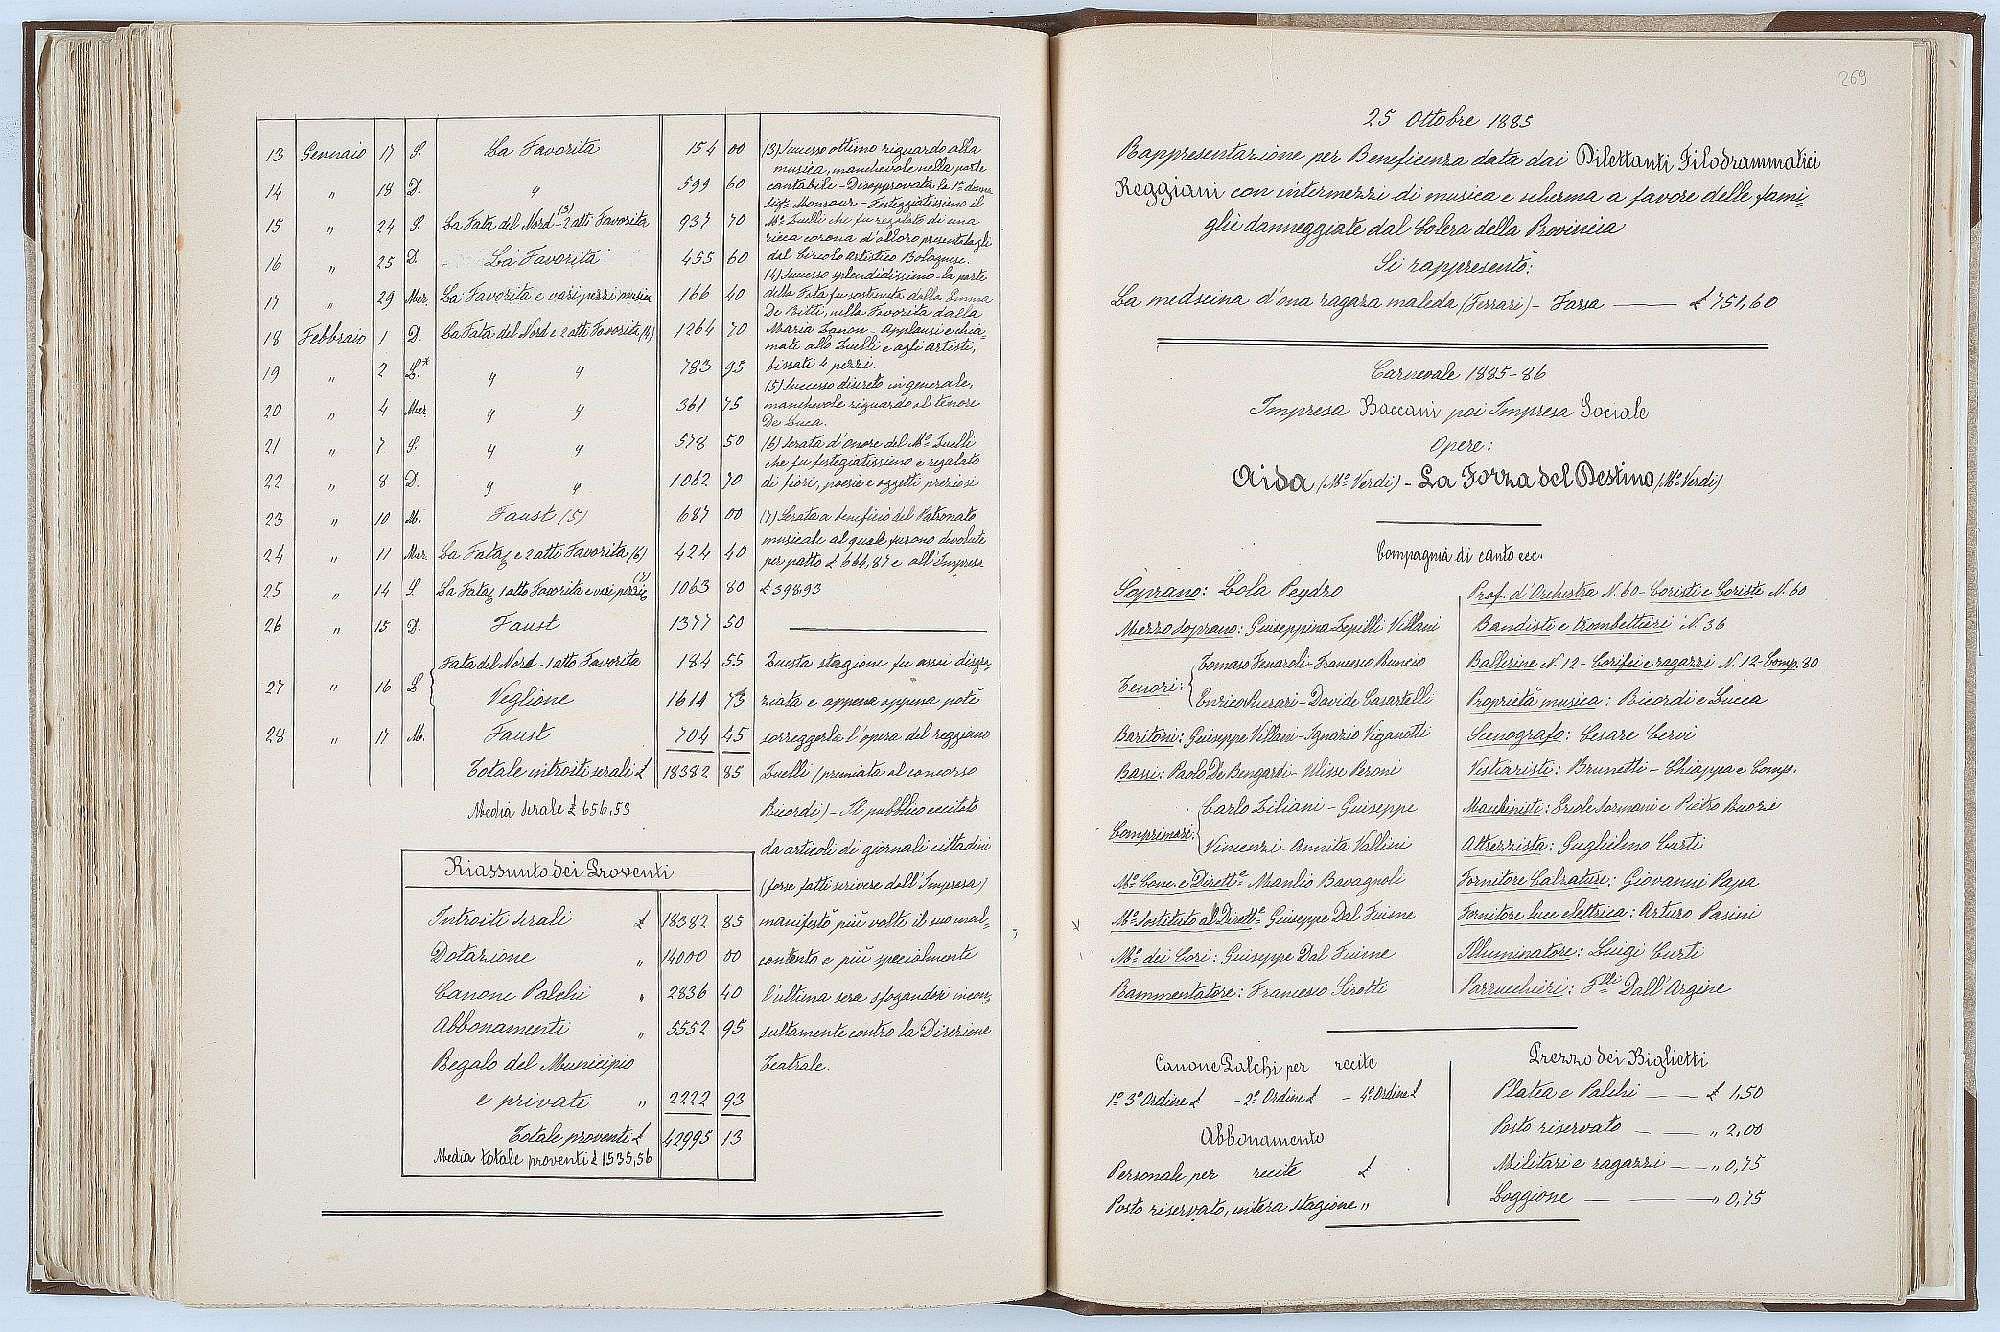 13 Gennaio 17 S. La Favorita 154 00
14 " 18 D. " 599 60
15 " 24 S. La Fata del Nord - 2 atti Favorita (3) 937 70
16 " 25 D. La Favorita 455 60
17 " 29 Mer. La Favorita e vari pezzi musica 166 40
18 Febbraio 1 D. La Fata del Nord e 2 atti Favorita (4) 1264 70
19 " 2 L.* " " 783 95
20 " 4 Mer. " " 361 75
21 " 7 S. " " 578 50
22 " 8 D. " " 1062 70
23 " 10 M. Faust (5) 687 00
24 " 11 Mer. La Fata, e 2 atti Favorita (6) 424 40
25 " 14 S. La Fata, 1 atto Favorita e vari pezzi (7) 1063 80
26 " 15 D. Faust 1377 50
27 " 16 L. Fata del Nord - 1 atto Favorita 184 55
Veglione 1614 73
28 " 17 M. Faust 704 45
Totale introiti serali £ 18382 85
Media serale £ 656,53
(3) Successo ottimo riguardo alla
musica, manchevole nella parte
cantabile - Disapprovata la 1ª dama
Sigª Monsaur - Festeggiatissimo il
Mº Zuelli che fu regalato di una
ricca corona d'alloro presentatagli
dal Circolo Artistico Bolognese.
(4) Successo splendidissimo - la parte
della Fata fu sostenuta dalla Emma
De Bitti, nella Favorita dalla
Maria Zanon - Applausi e chia-
mate allo Zuelli e agli artisti,
bissati 4 pezzi.
(5) Successo discreto in generale,
manchevole riguardo al tenore
De Luca.
(6) Serata d'onore del Mº Zuelli
che fu festegiatissimo e regalato
di fiori, poesie e oggetti preziosi
(7) Serata a beneficio del Patronato
musicale al quale furono devolute
per patto £ 666,87 e all'Impresa
£ 398,93
Questa stagione fu assai disgra-
ziata e appena appena potè
sorreggerla l'opera del reggiano
Zuelli (premiata al concorso
Ricordi) - Il pubblico eccitato
da articoli di giornali cittadini
(forse fatti scrivere dall'Impresa)
manifestò più volte il suo mal-
contento e più specialmente
l'ultima sera sfogandosi incon-
sultamente contro la Direzione
Teatrale.
Riassunto dei Proventi
Introiti serali £ 18382 85
Dotazione " 14000 00
Canone Palchi " 2836 40
Abbonamenti " 5552 95
Regalo del Municipio
e privati " 2222 93
Totale proventi £ 42995 13
Media totale proventi £ 1535,56
269
25 Ottobre 1885
Rappresentazione per Beneficenza data dai Dilettanti Filodrammatici
Reggiani con intermezzi di musica e scherma a favore delle fami-
glie danneggiate dal Colera della Provincia
Si rappresentò:
La medseina d'ona ragaza maleda (Ferrari) - Farsa — £ 751,60
Carnevale 1885-86
Impresa Baccani poi Impresa Sociale
Opere:
Aida (Mº Verdi) - La Forza del Destino (Mº Verdi)
Compagnia di canto ecc.
Soprano: Lola Peydro
Mezzo soprano: Giuseppina Zepilli Villani
Tenori: Tomaso Fenaroli - Francesco Runcio
Enrico Pierari - Davide Casartelli
Baritoni: Giuseppe Villani - Ignazio Viganotti
Bassi: Paolo De Bengardi - Ulisse Peroni
Comprimari: Carlo Ziliani - Giuseppe
Vincenzi - Annita Vallini
Mº Conc. e Direttº Manlio Bavagnoli
Mº Sostituto al Direttº Giuseppe Dal Fiume
Mº dei Cori: Giuseppe Dal Fiume
Rammentatore: Francesco Sirotti
Prof. d'Orchestra N. 60 - Coristi e Coriste N. 60
Bandisti e trombettieri N. 36
Ballerine N. 12 - Corifei e ragazzi N. 12 - Comp. 80
Proprietà musica: Ricordi e Lucca
Scenografo: Cesare Cervi
Vestiaristi: Brunetti - Chiappa e Comp.
Macchinisti: Ercole Sormani e Pietro Buozi
Attrezzista: Guglielmo Curti
Fornitore Calzature: Giovanni Papa
Fornitore luce elettrica: Arturo Pasini
Illuminatore: Luigi Curti
Parrucchieri: Flli Dall'Argine
Canone Palchi per recite
1º 3º Ordine £ - 2º Ordine £ - 4º Ordine £
Abbonamento
Personale per recite £
Posto riservato, intera stagione "
Prezzo dei Biglietti
Platea e Palchi — £ 1,50
Posto riservato — " 2,00
Militari e ragazzi — " 0,75
Loggione — " 0,75